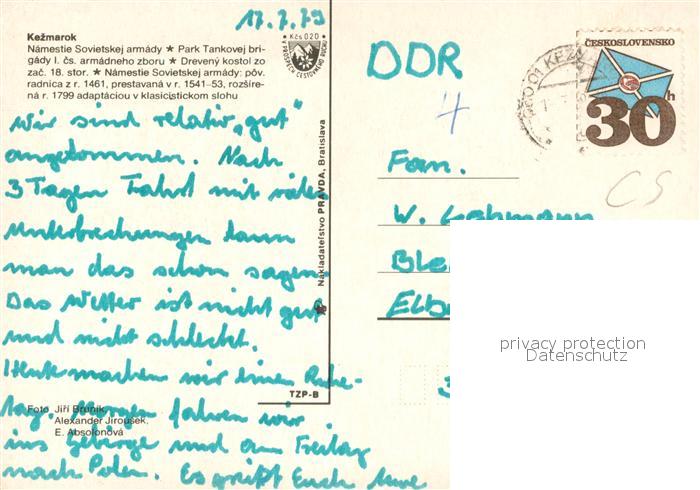 17.7.79
Kežmarok
Námestie Sovietskej armády ★ Park Tankovej bri-
gády I. čs. armádneho zboru ★ Drevený kostol zo
zač. 18. stor. ★ Námestie Sovietskej armády: pôv.
radnica z r. 1461, prestavaná v r. 1541–53, rozšíre-
ná r. 1799 adaptáciou v klasicistickom slohu
Kčs 0,20
V PROSPECH CESTOVNÉHO RUCHU
Wir sind relativ „gut"
angekommen. Nach
3 Tagen Fahrt mit vielen
Unterbrechungen kann
man das schon sagen.
Das Wetter ist nicht gut
und nicht schlecht.
Heute machen wir einen Ruhe-
tag. Morgen fahren wir
ins Gebirge und am Freitag
nach Polen. Es grüßt Euch
Foto Jiří Bruník,
Alexander Jiroušek,
E. Absolonová
TZP-B
Nakladateľstvo PRAVDA, Bratislava
DDR
4
060 01
ČESKOSLOVENSKO
30 h
CS
Fam.
W. Lehmann
privacy protection
Datenschutz